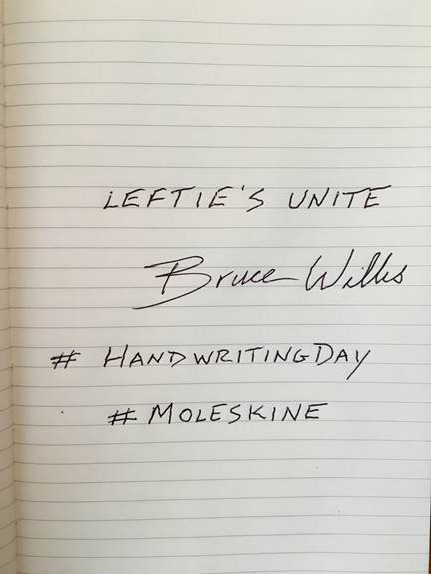 LEFTIE'S UNITE
Bruce Willis
# HANDWRITINGDAY
# MOLESKINE